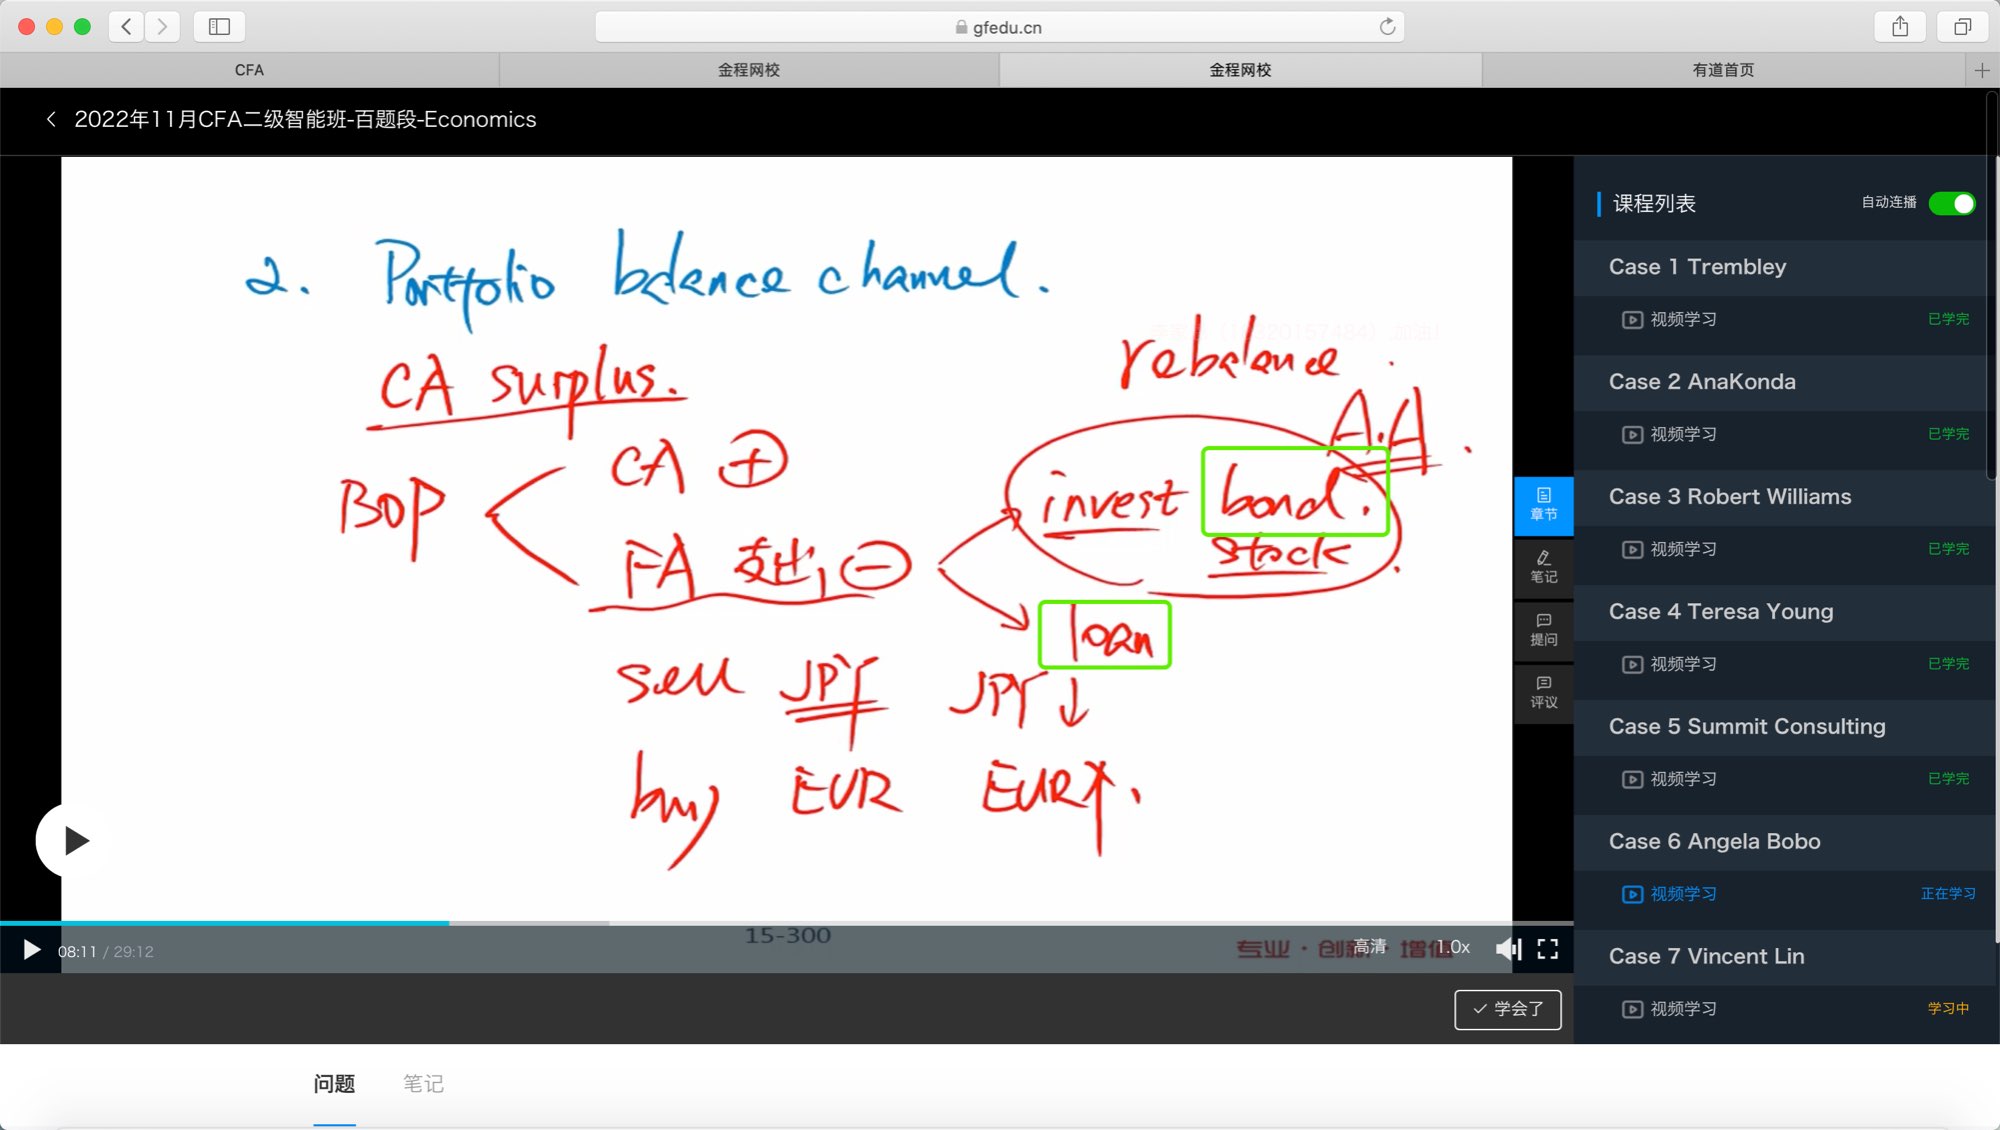 gfedu.cn
CFA
金程网校
金程网校
有道首页
2022年11月CFA二级智能班-百题段-Economics
2. Portfolio balance channel.
CA surplus.
rebalance.
A.A.
BOP
CA +
FA 支出, -
invest bond.
stock
loan
sell JPY JPY ↓
buy EUR EUR ↑.
15-300
专业·创新·增值
08:11 / 29:12
高清
1.0x
学会了
章节
笔记
提问
评议
课程列表
自动连播
Case 1 Trembley
视频学习 已学完
Case 2 AnaKonda
视频学习 已学完
Case 3 Robert Williams
视频学习 已学完
Case 4 Teresa Young
视频学习 已学完
Case 5 Summit Consulting
视频学习 已学完
Case 6 Angela Bobo
视频学习 正在学习
Case 7 Vincent Lin
视频学习 学习中
问题
笔记